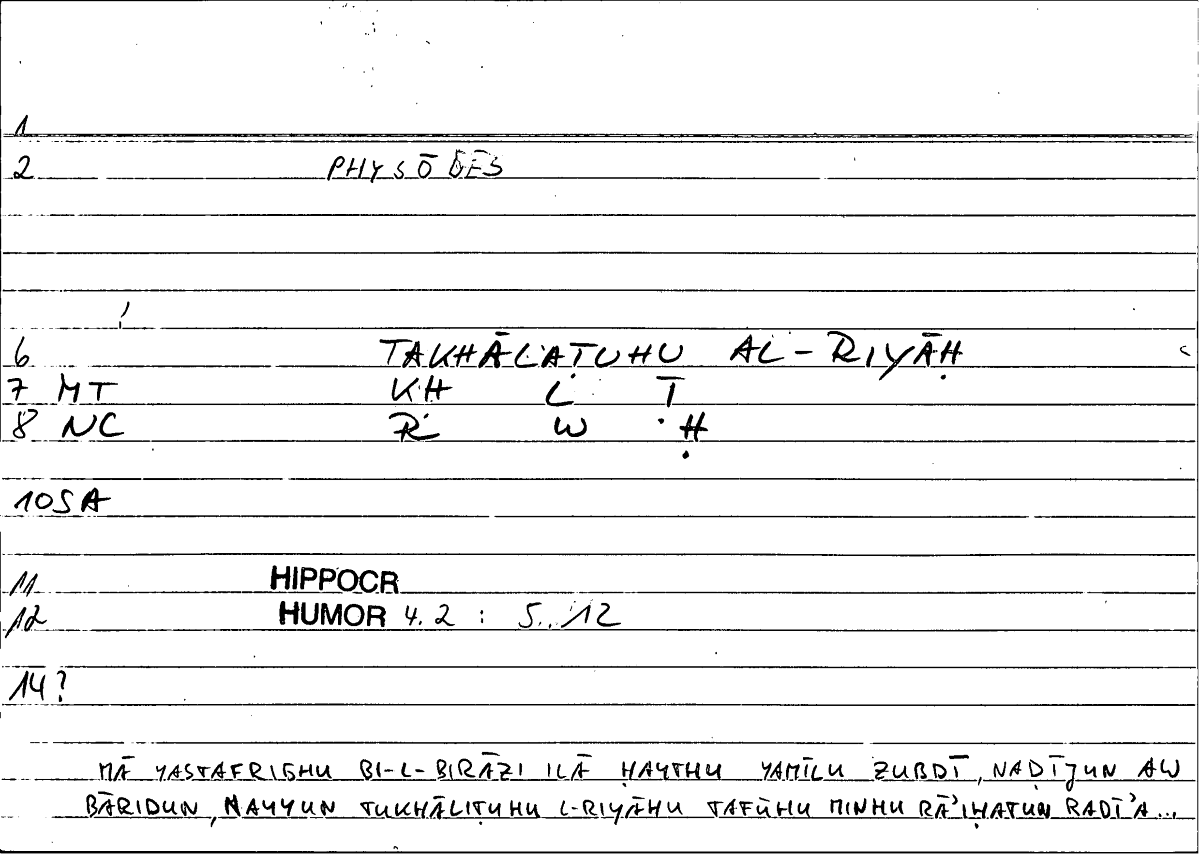 1
2 PHYSŌDĒS
6 TAKHĀLAṬUHU AL-RIYĀḤ
7 MT KH L Ṭ
8 NC R W Ḥ
10 SA
11 HIPPOCR
12 HUMOR 4.2 : 5..12
14 ?
MĀ YASTAFRIGHU BI-L-BIRĀZI ILĀ ḤAYTHU YAMĪLU ZUBDĪ, NAḌĪJUN AW
BĀRIDUN, NAYYUN TUKHĀLIṬUHU L-RIYĀḤU TAFŪḤU MINHU RĀ'IḤATUN RADĪ'A...